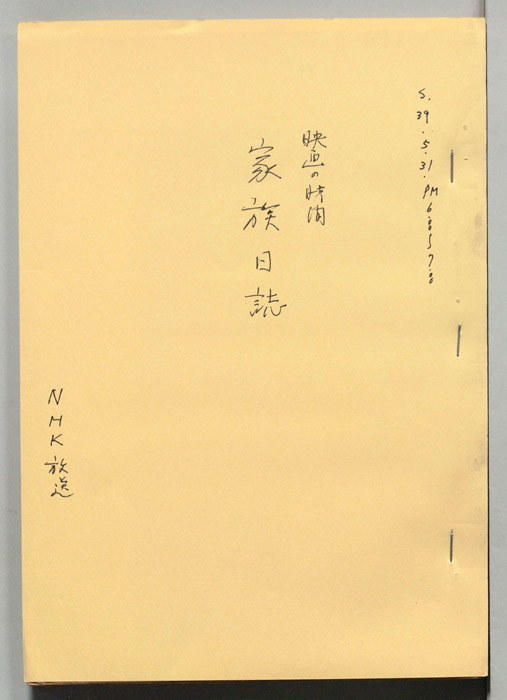 S.39.5.31.PM6:00〜7:00
映画の時間
家族日誌
NHK放送